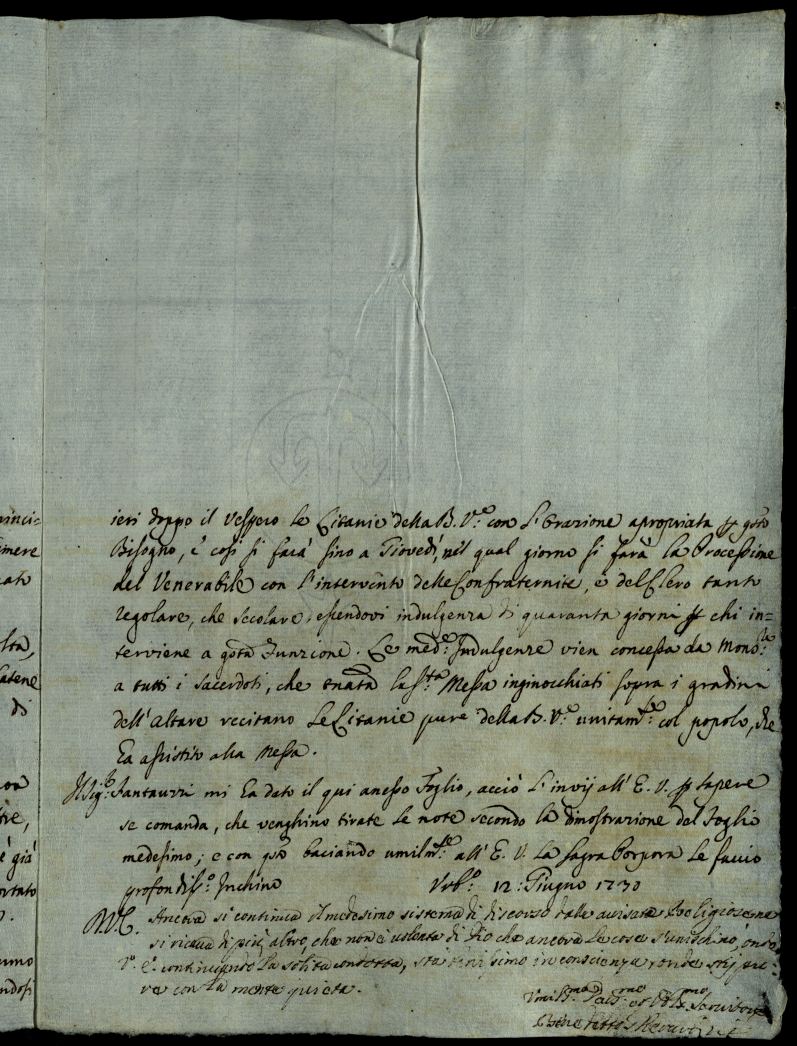 ieri doppo il Vespero le Litanie della B. V.e con l'Orazione apropriata p q.sto
Bisogno, e così si farà sino a Giovedì, nel qual giorno si farà la Processione
del Venerabile con l'intervento delle Confraternite, e del Clero tanto
regolare, che secolare, essendovi indulgenza di quaranta giorni p chi in=
terviene a q.sta Funzione. Le med.e Indulgenze vien concessa da Mons.r
a tutti i sacerdoti, che la S.ta Messa inginocchiati sopra i gradini
dell'Altare recitano le Litanie pure della B. V.e unitam.te col popolo, che
ha assistito alla Messa.
Il Sig.r Santauzzi mi ha dato il qui anesso Foglio, acciò l'invij all'E. V. p sapere
se comanda, che venghino tirate le note secondo la dimostrazione del Foglio
medesimo; e con q.sto baciando umilm.te all'E. V. la Sagra Porpora le faccio
profondiss.o Inchino Urb.o 12: Giugno 1730
Ancora si continua il medesimo sistema di discorso dalle avisate Religiose ne
si ricava di più altro, che non è volontà di Dio che ancora le cose s'unischino, onde
continuando la solita condotta, sta in conscienza
re con la mente quieta.
Umiliss.mo Dev.mo et Obl.mo Servitore